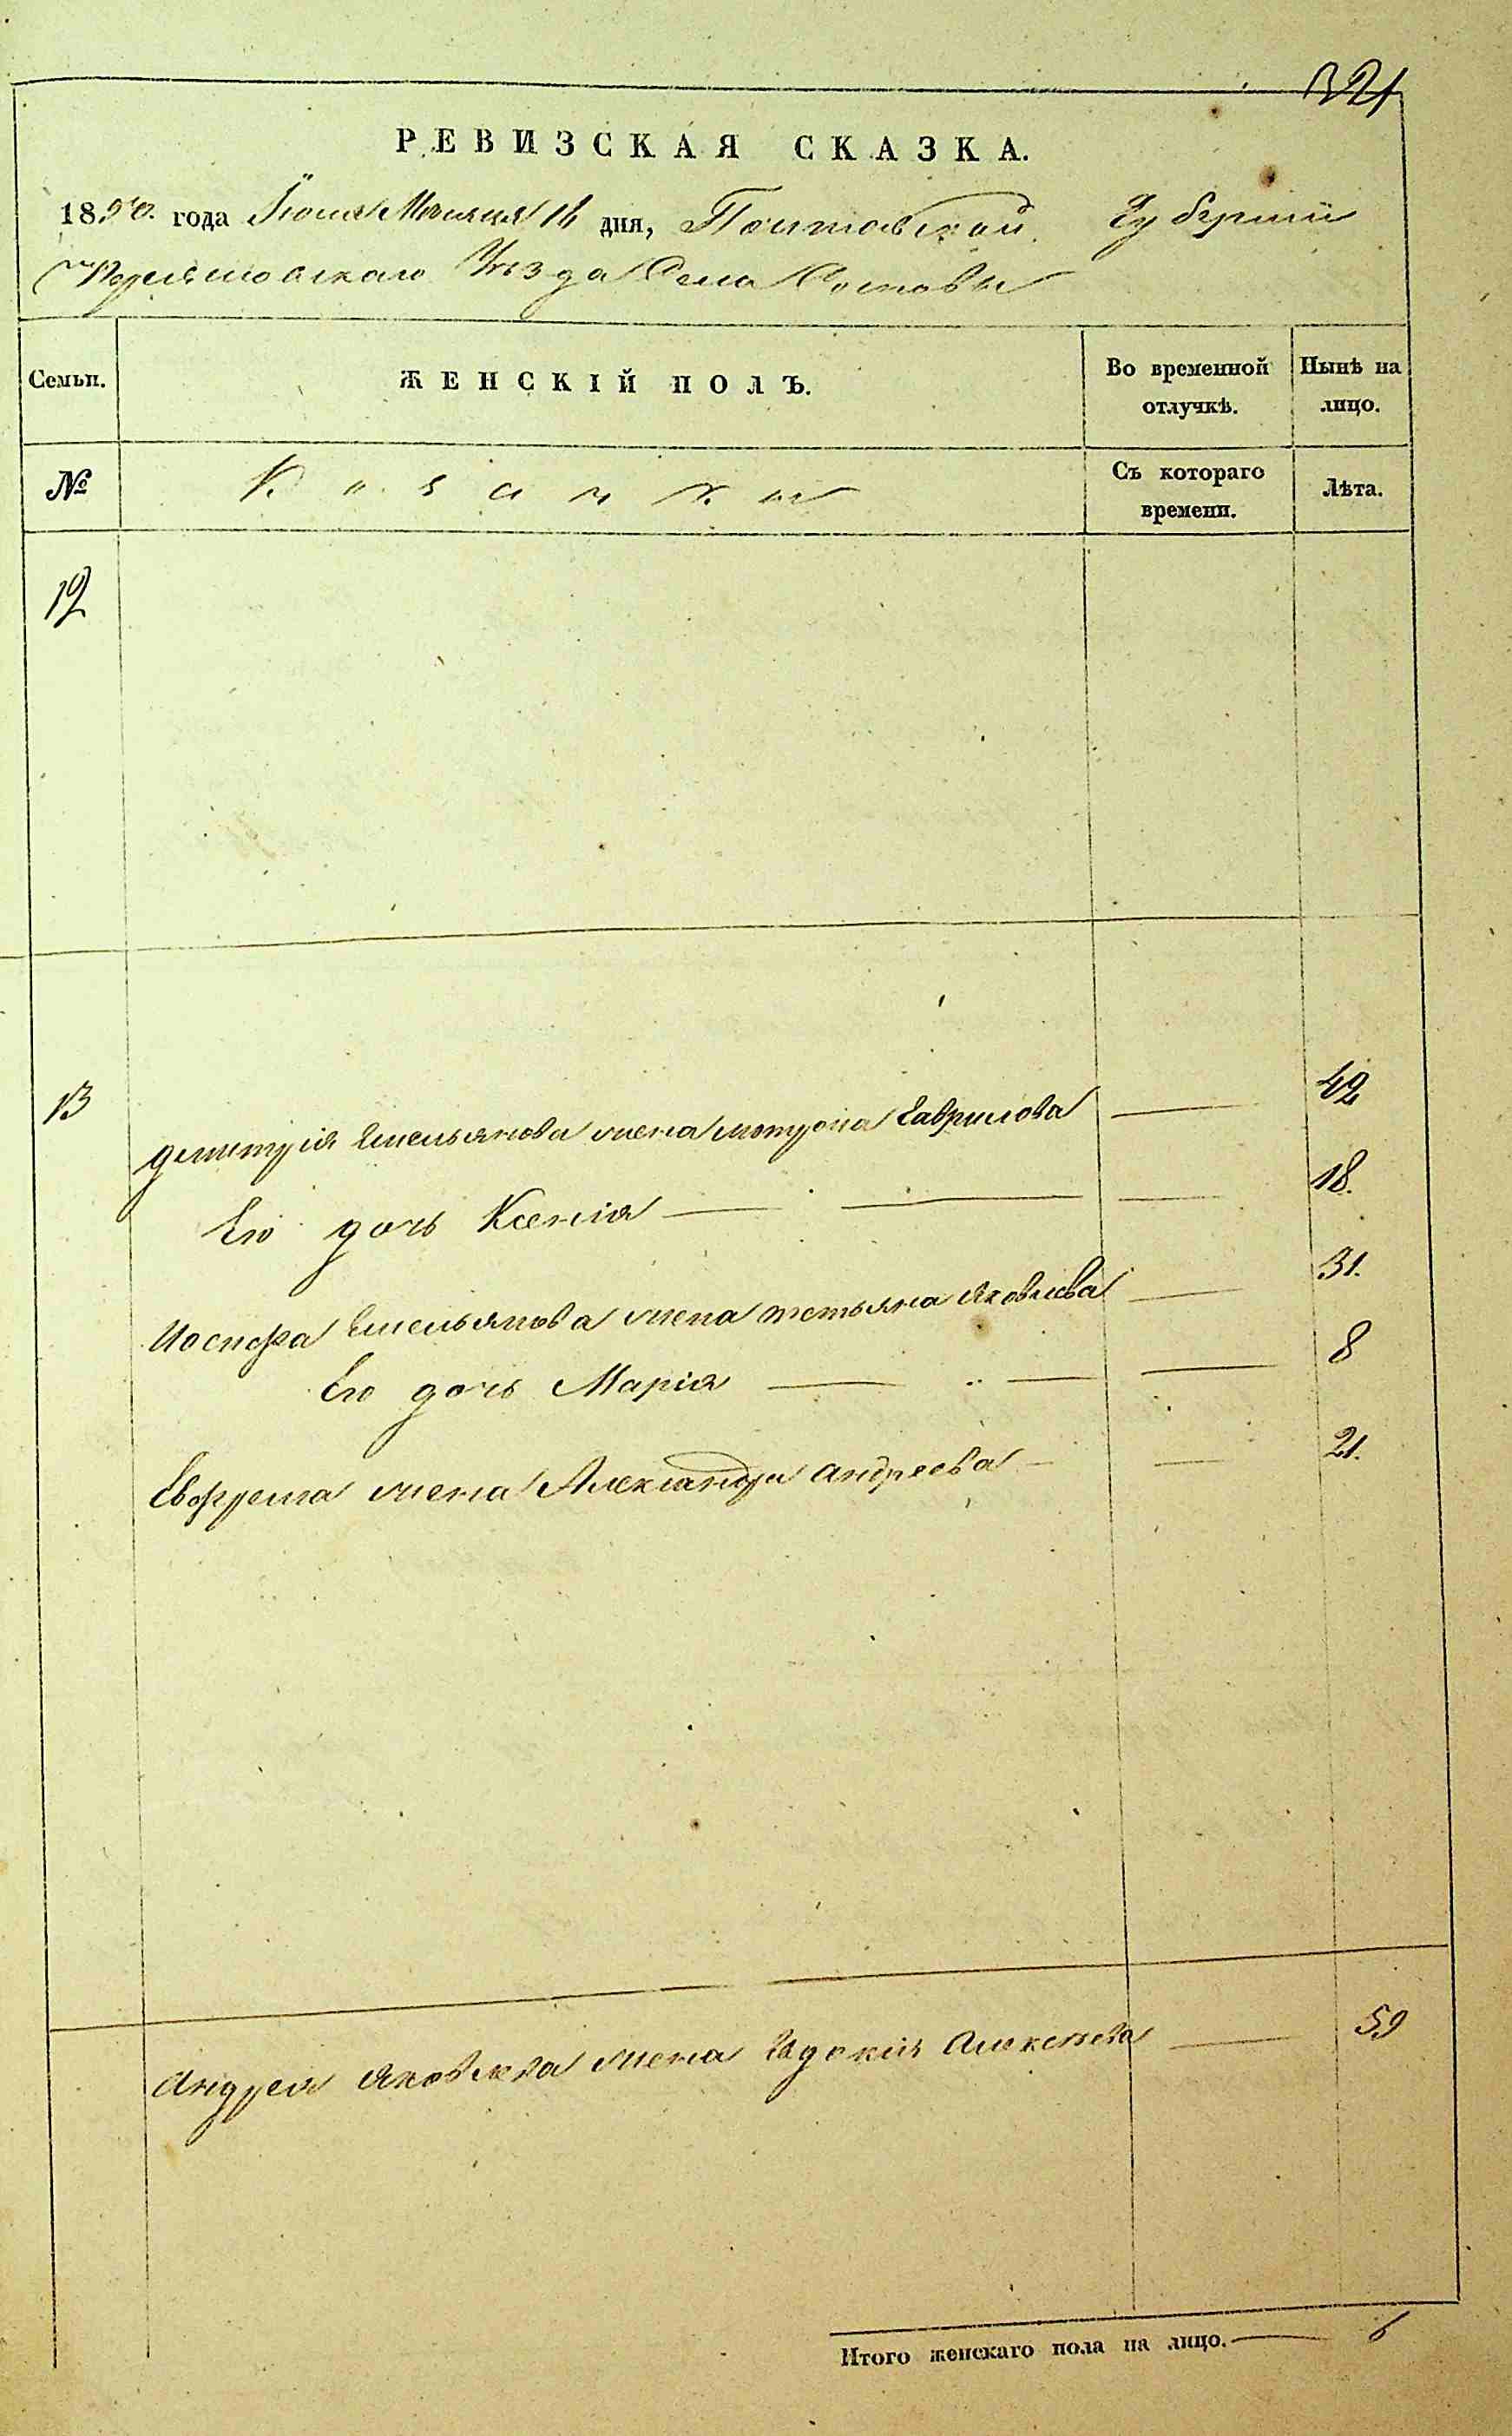 321
РЕВИЗСКАЯ СКАЗКА.
1850. года Іюня Мѣсяца 16 дня, Полтавской Губерніи
Уѣзда Села
Семьи. ЖЕНСКІЙ ПОЛЪ. Во временной отлучкѣ. Нынѣ на лицо.
№ Козачки Съ котораго времени. Лѣта.
12
13 Дмитрія Емельянова жена Мотрона Гаврилова — 42
Его дочь Ксенія — — — 18.
Иосифа Емельянова жена Тетьяна Яковлева — 31.
Его дочь Марія — — — 8
Ефрема жена Александра Андреева — — 21.
Андрея Яковлева жена Евдокія Алексѣева — 59
Итого женскаго пола на лицо. — 6